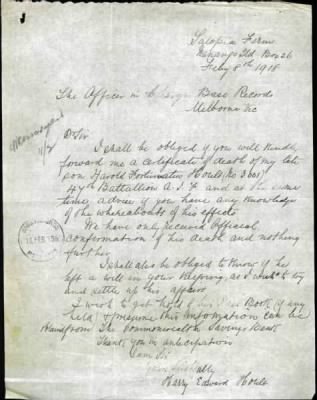 Salopia Farm
Nanango Qld Box 26
Feby 8th 1918
The Officer in Charge Base Records
Melborne Vic
D Sir
I shall be obliged if you will kindly
forward me a certificate of death of my late
son Harold Fortunatus Hoult (No 3661)
47th Battallion A.I.F and at the same
time, advise if you have any knowledge
of the whereabouts of his effects.
We have only received Official
confermation of his death and nothing
further
I shall also be obliged to know if he
left a will in your keeping, as I wish to try
and settle up his affairs
I wish to get hold of his Pass Book if any
held & presume this information can be
had from the Commonwealth Savings Bank
Thank you in anticipation
I am Sir
Yours faithfully
Harry Edward Hoult